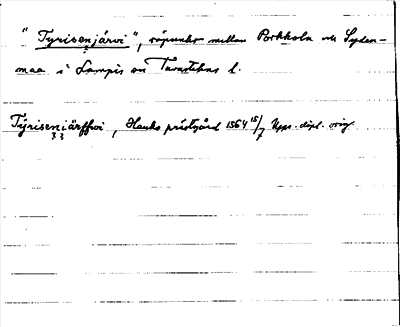 "Tyrisenjärvi", råpunkt mellan Porkkola och Syden-
maa i Lampis sn Tavastehus l.
Tÿrisenjärffwi, Hauho prästgård 1564 15/7 Upps. dipl. orig.